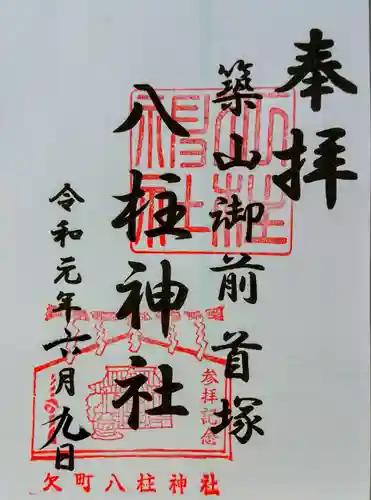 奉拝
築山御前首塚
八柱神社
令和元年六月九日
八柱神社
参拝記念
欠町八柱神社